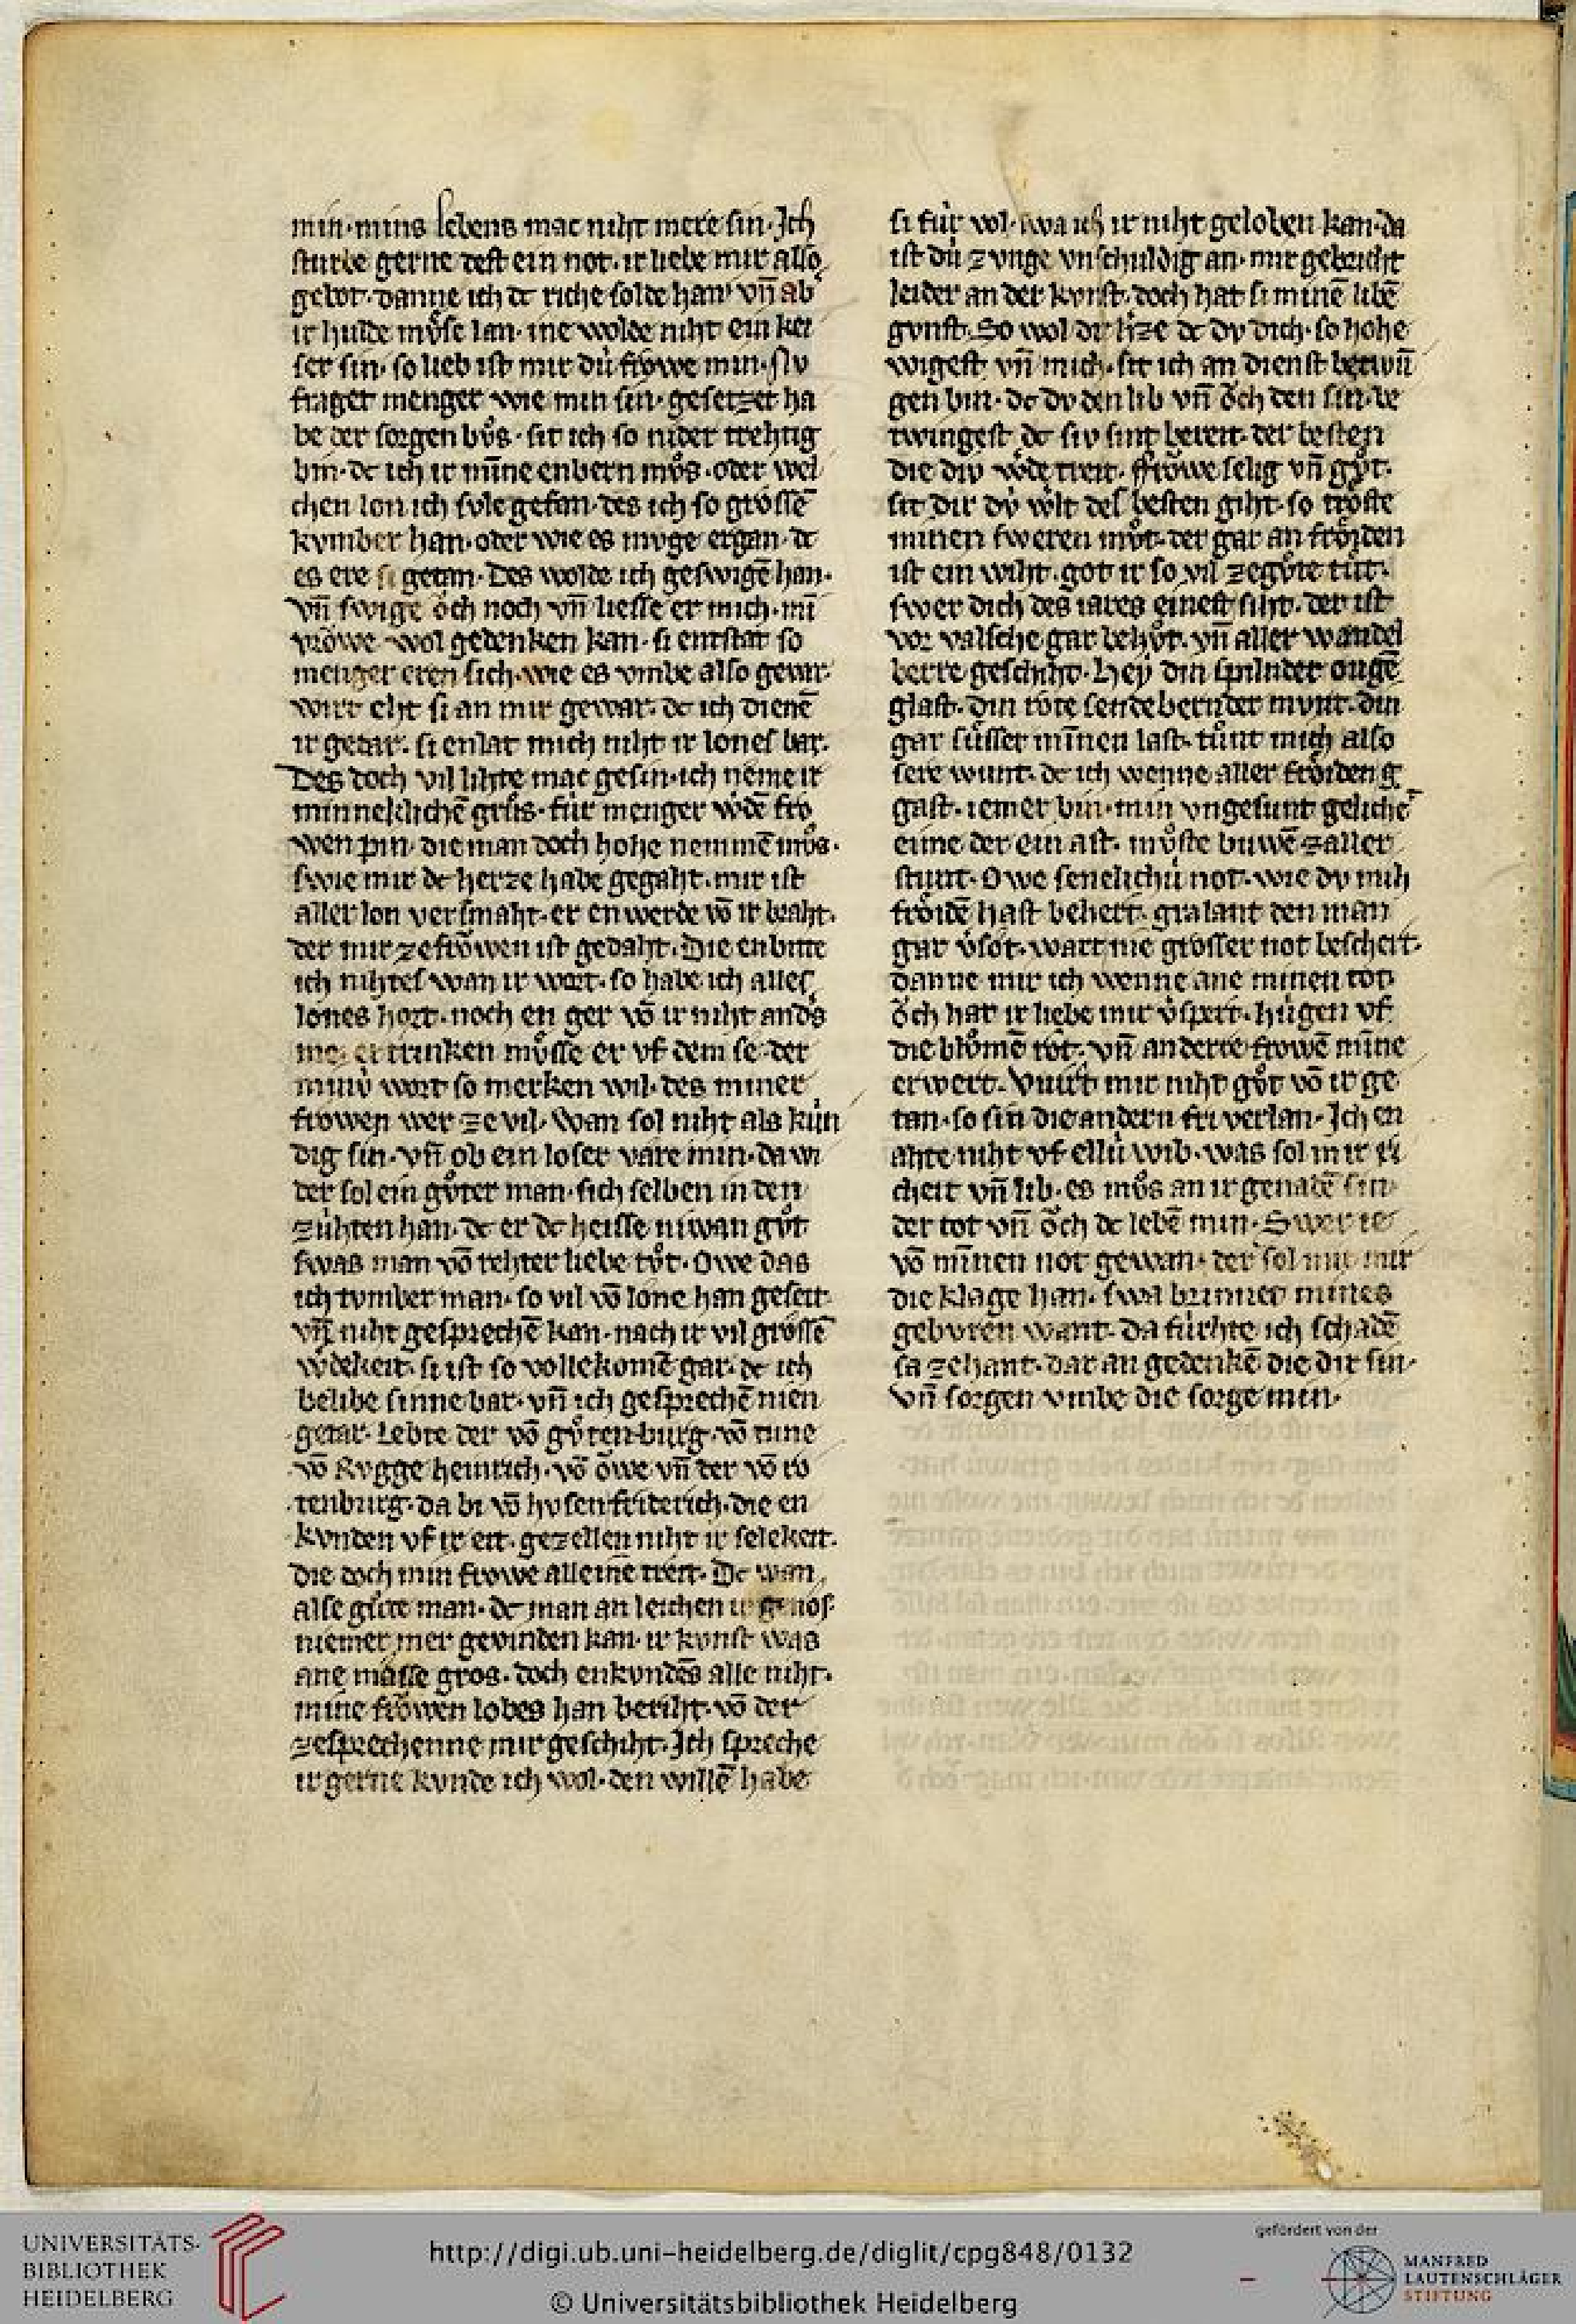 min · mins lebens mac niht mere sin · Ich
sturbe gerne dest ein not · ir liebe mir also
gebot · danne ich dc riche solde han vn̄ ab
ir hulde mv̊se lan · ine wolde niht ein kei
ser sin · so lieb ist mir dv̇ frowe min · Nv
fraget menger wie min sin · gesetzet ha
be der sorgen bv̊s · sit ich so nider trehtig
bin · dc ich ir mīne enbern mv̊s · oder wel
chen lon ich svle gefan · des ich so grossē
kvmber han · oder wie es mvge ergan · dc
es ere si getan · Des wolde ich geswigē han ·
vn̄ swige ŏch noch vn̄ liesse er mich · mī
vrŏwe wol gedenken kan · si entstat so
menger eren sich · wie es vmbe also gewir ·
wirt eht si an mir gewar · dc ich dienē
ir getar · si enlat mich niht ir lones bar ·
Des doch vil lihte mac gesin · ich neme ir
minneklichē grůs · fu̇r menger w̓dē fro
wen pin · die man doch hohe nemmē mv̊s ·
swie mir dc herze habe gegaht · mir ist
aller lon versmaht · er enwerde vō ir braht ·
der mir ze frŏwen ist gedaht · Die enbitte
ich nihtes wan ir wort · so habe ich alles
lones hort · noch en ger vō ir niht anders
me · er trinken mv̊sse er vf dem se · der
minv̇ wort so merken wil · des miner
frowen wer ze vil · Wan sol niht als ku̇n
dig sin · vn̄ ob ein loser vare min · da wi
der sol ein gv̊ter man · sich selben in den
zu̇hten han · dc er dc heisse niwan gv̊t
swas man vō rehter liebe tv̊t · Owe das
ich tvmber man · so vil vō lone han geseit
vn̄ niht gesprechē kan · nach ir vil grossē
w̓dekeit · si ist so vollekomē gar · dc ich
belibe sinne bar · vn̄ ich gesprechē nien
getar · Lebte der vō gv̊tenburg · vō turne
vō Rvgge heinrich · vō ŏwe vn̄ der vō ro
tenburg · da bi vō hvsen friderich · die en
kvnden vf ir eit · gezellen niht ir selekeit ·
die doch min frowe alleine treit · Dc wan
alse gůte man · dc man an leichen ir genos
niemer mer gevinden kan · ir kvnst was
ane masse gros · doch enkvndēs alle niht ·
mine frŏwen lobes han beriht · vō der
ze sprechenne mir geschiht · Ich spreche
ir gerne kvnde ich wol · den willē habe
si fu̇r vol · swa ich ir niht geloben kan · da
ist du̇ zvnge vnschuldig an · mir gebricht
leider an der kvnst · doch hat si minē libē
gvnst · So wol dir lize dc dv dich · so hohe
wigest vn̄ mich · sit ich an dienst betwn̄
gen bin · dc dv den lib vn̄ ŏch den sin · be
twingest dc siv sint bereit · der besten
die div w̓de treit · Frŏwe selig vn̄ gv̊t ·
sit dir dv̇ w̓lt des besten giht · so trŏste
minen sweren mv̊t · der gar an frŏiden
ist ein wiht · got ir so vil ze gv̊te tůt ·
swer dich des iares einest siht · der ist
vor valsche gar behv̊t · vn̄ aller wandel
berre geschiht · Hey din spilnder ougē
glast · din rote sende bernder mvnt · din
gar su̇sser mīnen last · tůnt mich also
sere wunt · dc ich wenne aller frŏiden g
gast · iemer bin · min vngesunt geliche
eime der ein ast · mv̊ste buwē zaller
stunt · Owe senelichu̇ not · wie dv mih
frŏidē hast behert · gralant den man
gar v̓sot · wart nie grosser not beschert ·
danne mir ich wenne ane minen tot
ŏch hat ir liebe mir v̓spert · hu̇gen vf
die blůmē rot · vn̄ anderre frowē mīne
erwert · Wirt mir niht gv̊t vō ir ge
tan · so sin die andern fri verlan · Ich en
ahte niht vf ellu̇ wib · was sol mir ri
cheit vn̄ lib · es mv̊s an ir genadē sin
der tot vn̄ ŏch dc lebē min · Swer ie
vō mīnen not gewan · der sol nu mir
die klage han · swa brinnet mines
geburen want · da fu̇rhte ich schadē
sa zehant · dar an gedenkē die dir sin ·
vn̄ sorgen vmbe die sorge min ·
UNIVERSITÄTS-
BIBLIOTHEK
HEIDELBERG
http://digi.ub.uni-heidelberg.de/diglit/cpg848/0132
© Universitätsbibliothek Heidelberg
gefördert von der
MANFRED
LAUTENSCHLÄGER
STIFTUNG